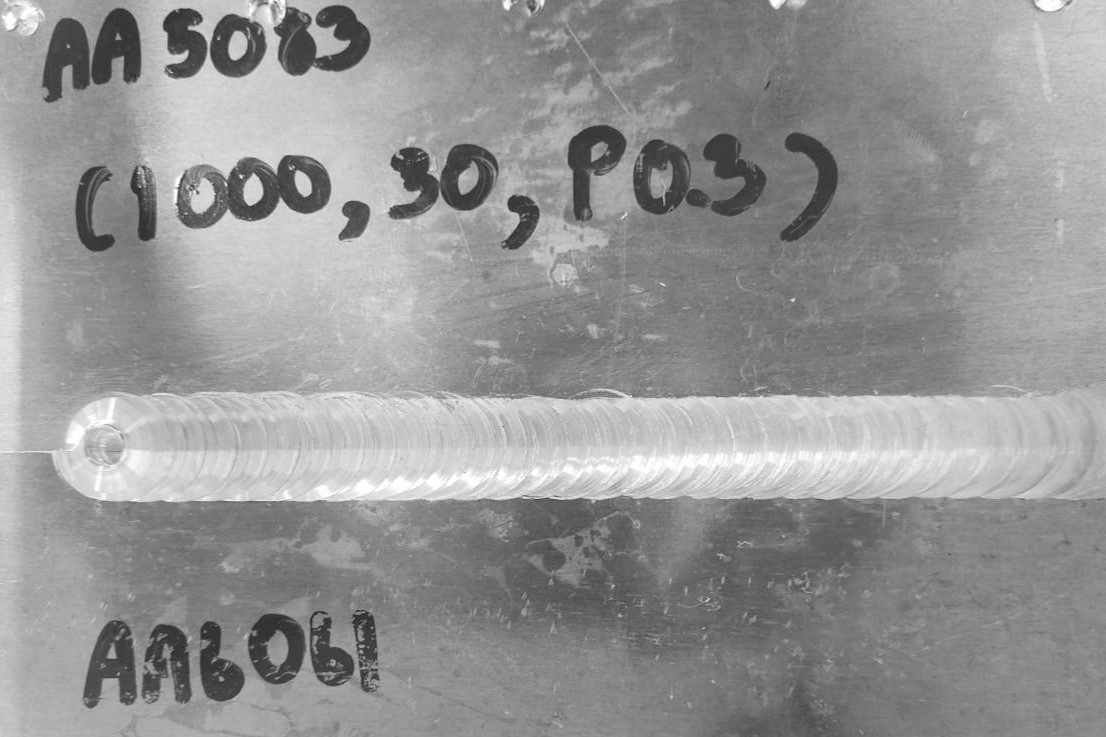 AA5083
(1000, 30, P0.3)
AA6061